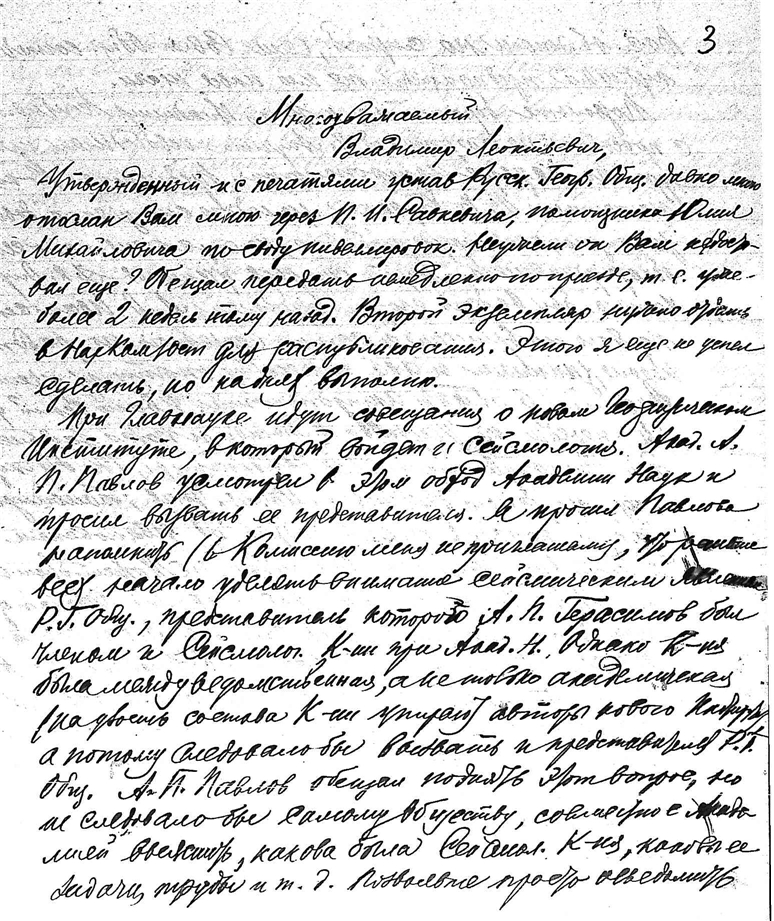 3
Многоуважаемый
Владимир Леонтьевич,
Утвержденный и с печатями устав Русск. Геогр. Общ. давно мною
отослан Вам мною через П. И. Савкевича, помощника Юлия
Михайловича по своду нивеллировок. Неужели он Вам не достав-
вал еще? Обещал передать немедленно по приезде, т. е. уже
более 2 недель тому назад. Второй экземпляр нужно отдать
в Наркомюст для распубликования. Этого я еще не успел
сделать, но на днях выполню.
При Главнауке идут совещания о новом Геофизическом
Институте, в который войдет и сейсмология. Акад. А.
П. Павлов усмотрел в этом обход Академии Наук и
просил вызвать ее представителя. Я просил Павлова
напомнить (в Комиссию меня не приглашали), что раньше
всех начало уделять внимание сейсмическим
Р. Г. Общ., представитель которого А. П. Герасимов был
членом и Сейсмолог. К-ии при Акад. Н. Однако К-ия
была междуведомственная, а не только академическая
(на двоить состава К-ии упирают авторы нового Института)
а потому следовало бы вызвать и представителя Р. Г.
Общ. А. П. Павлов обещал поднять этот вопрос, но
не следовало бы самому Обществу, совместно с Акаде-
мией выяснить, какова была Сейсмол. К-ия, каковы ее
задачи, труды и т. д. Позвольте просто осведомить